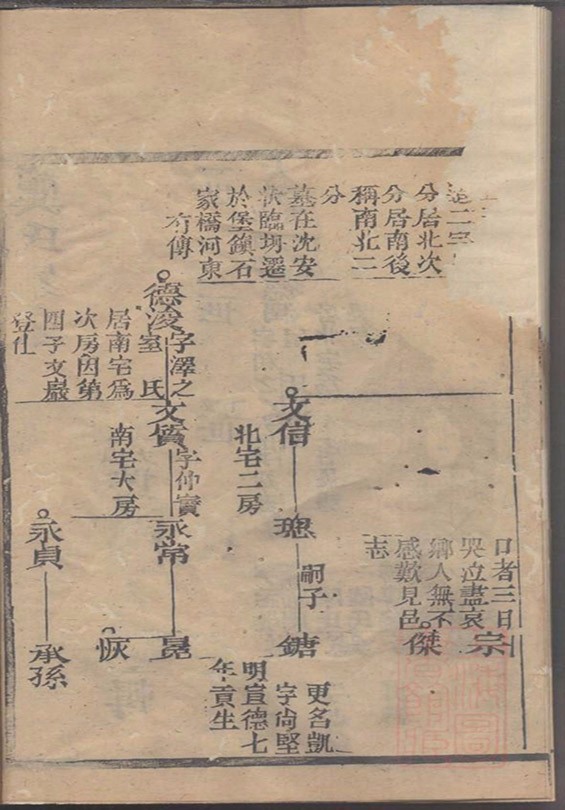 分居北次
分居南後
稱南北二
分
墓在沈安
狀臨坍遷
於堡鎮石
家橋河東
有傳
口者三日
哭泣盡哀
鄉人無不
感歎見邑
志
宗
傑
文信
北宅二房
璁
嗣子
鎕
更名凱
字尙堅
明宣德七
年貢生
德浚
字澤之
室 氏
居南宅爲
次房因第
四子文嚴
登仕
文質
字仲實
南宅大房
永常
昆
恢
永貞
承孫